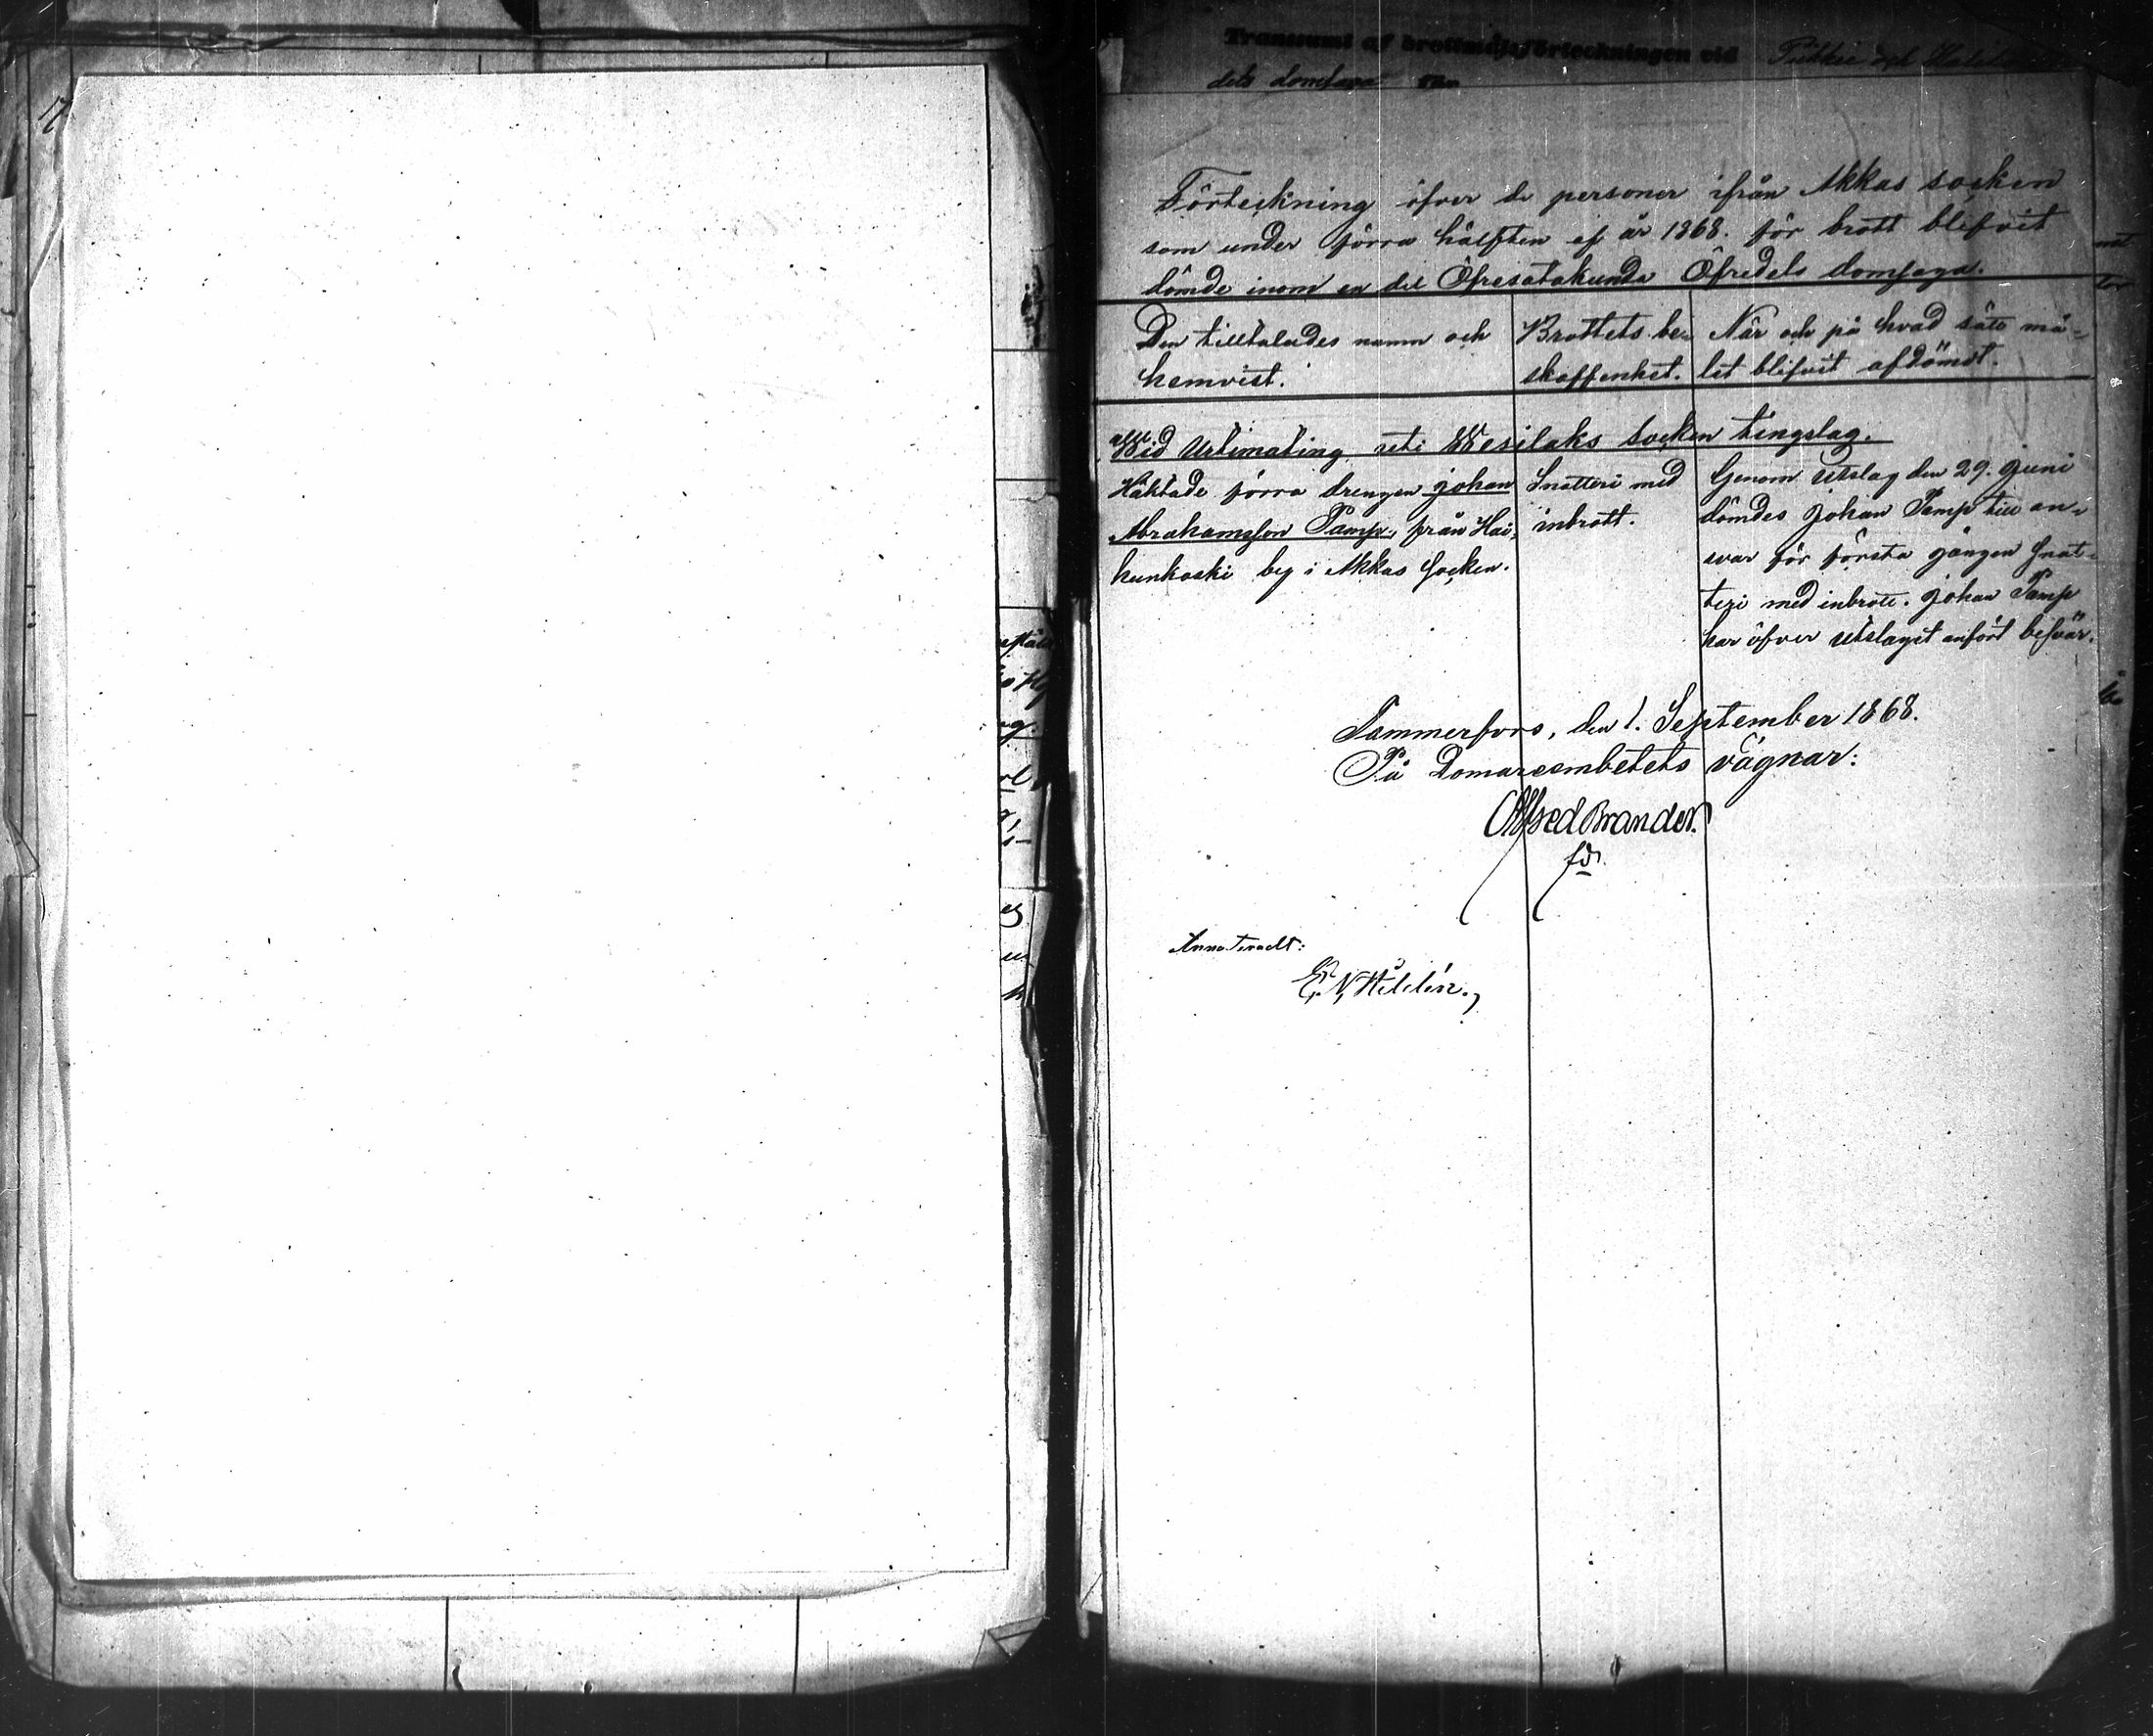 Transsumt af brottmålsförteckningen vid Pikkie och
dels domsaga
Förteckning öfver de personer ifrån Akkas socken
som under förra hälften af år 1868. för brott blifvit
dömde inom en del Öfresatakunda Öfredels domsaga.
Den tilltalades namn och
hemvist.
Brottets be-
skaffenhet.
När och på hvad sätt må-
let blifvit afdömdt.
Wid Urtimating uti Wesilaks Socken tingslag.
Häktade förra drengen Johan
Abrahamsson Tamp, från Hai-
hunkoski by i Akkas Socken.
Snatteri med
inbrott.
Genom Utslag den 29. Juni
dömdes Johan Tamp till an-
svar för första gången Snat-
teri med inbrott. Johan Tamp
har öfver utslaget anfört besvär.
Tammerfors, den 1. September 1868.
På Domareembetets vägnar:
Alfred Brander.
fd.
Annoteradt:
E. N. Hildén.